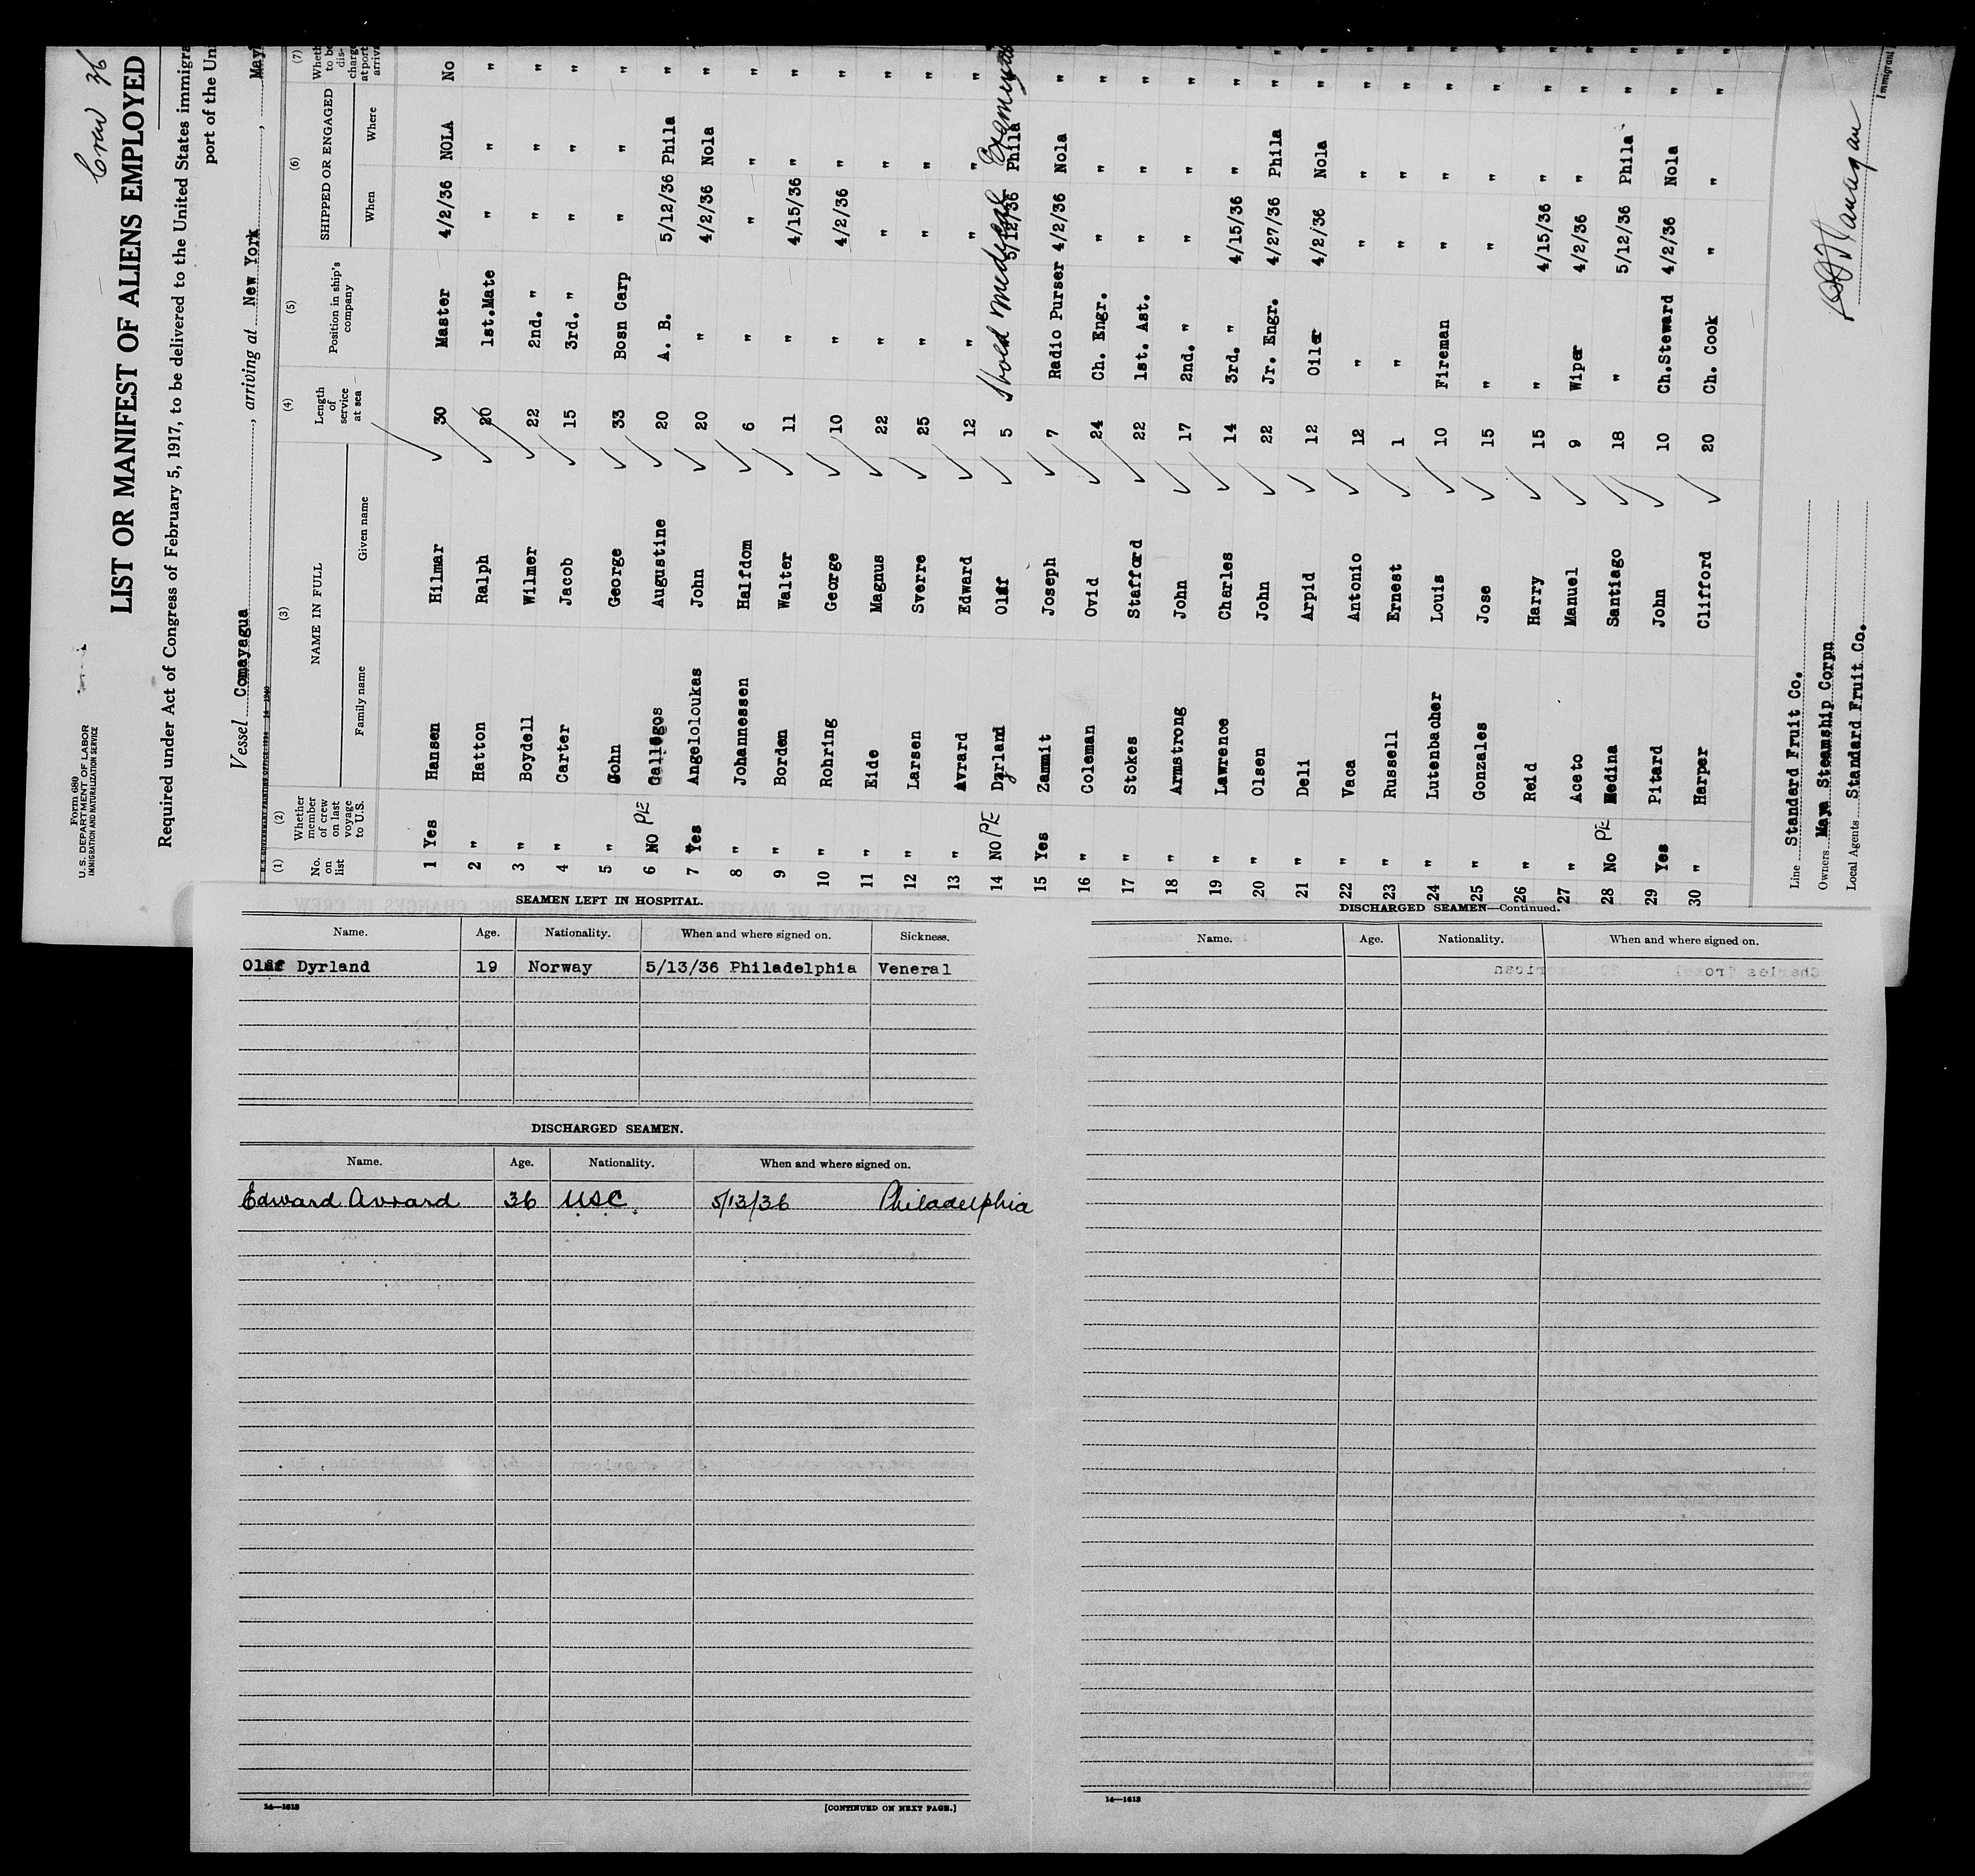 Crew 36
Form 680
U.S. DEPARTMENT OF LABOR
IMMIGRATION AND NATURALIZATION SERVICE
LIST OR MANIFEST OF ALIENS EMPLOYED
Required under Act of Congress of February 5, 1917, to be delivered to the United States immigra
port of the Uni
Vessel Comayagua, arriving at New York, May
(1) (2) (3) (4) (5) (6) (7)
No. on list
Whether member of crew on last voyage to U.S.
NAME IN FULL
Family name Given name
Length of service at sea
Position in ship's company
SHIPPED OR ENGAGED
When Where
Wheth to be dis- charge at port arriva
1 Yes Hansen Hilmar 30 Master 4/2/36 NOLA No
2 " Hatton Ralph 20 1st.Mate " " "
3 " Boydell Wilmer 22 2nd. " " " "
4 " Carter Jacob 15 3rd. " " " "
5 " John George 33 Bosn Carp " " "
6 NO PE Gallegos Augustine 20 A. B. 5/12/36 Phila "
7 Yes Angeloloukas John 20 " 4/2/36 Nola "
8 " Johannessen Halfdom 6 " " " "
9 " Borden Walter 11 " 4/15/36 " "
10 " Rohring George 10 " 4/2/36 " "
11 " Eide Magnus 22 " " " "
12 " Larsen Sverre 25 " " " "
13 " Avrard Edward 12 " " " "
14 NO PE Dyrland Olaf 5 5/12/36 Phila
15 Yes Zammit Joseph 7 Radio Purser 4/2/36 Nola "
16 " Coleman Ovid 24 Ch. Engr. " " "
17 " Stokes Stafford 22 1st. Ast. " " "
18 " Armstrong John 17 2nd. " " " "
19 " Lawrence Charles 14 3rd. " 4/15/36 " "
20 " Olsen John 22 Jr. Engr. 4/27/36 Phila "
21 " Deli Arpid 12 Oiler 4/2/36 Nola "
22 " Vaca Antonio 12 " " " "
23 " Russell Ernest 1 " " " "
24 " Lutenbacher Louis 10 Fireman " " "
25 " Gonzales Jose 15 " " " "
26 " Reid Harry 15 " 4/15/36 " "
27 " Aceto Manuel 9 Wiper 4/2/36 " "
28 No PE Medina Santiago 18 " 5/12/36 Phila "
29 Yes Pitard John 10 Ch.Steward 4/2/36 Nola "
30 " Harper Clifford 20 Ch. Cook " " "
Line Standard Fruit Co.
Owners Maya Steamship Corpn
Local Agents Standard Fruit Co.
Immigrant I
SEAMEN LEFT IN HOSPITAL.
Name. Age. Nationality. When and where signed on. Sickness.
Olaf Dyrland 19 Norway 5/13/36 Philadelphia Veneral
DISCHARGED SEAMEN.
Name. Age. Nationality. When and where signed on.
Edward Avrard 36 USC. 5/13/36 Philadelphia
14—1613
[CONTINUED ON NEXT PAGE.]
DISCHARGED SEAMEN—Continued.
Name. Age. Nationality. When and where signed on.
14—1613